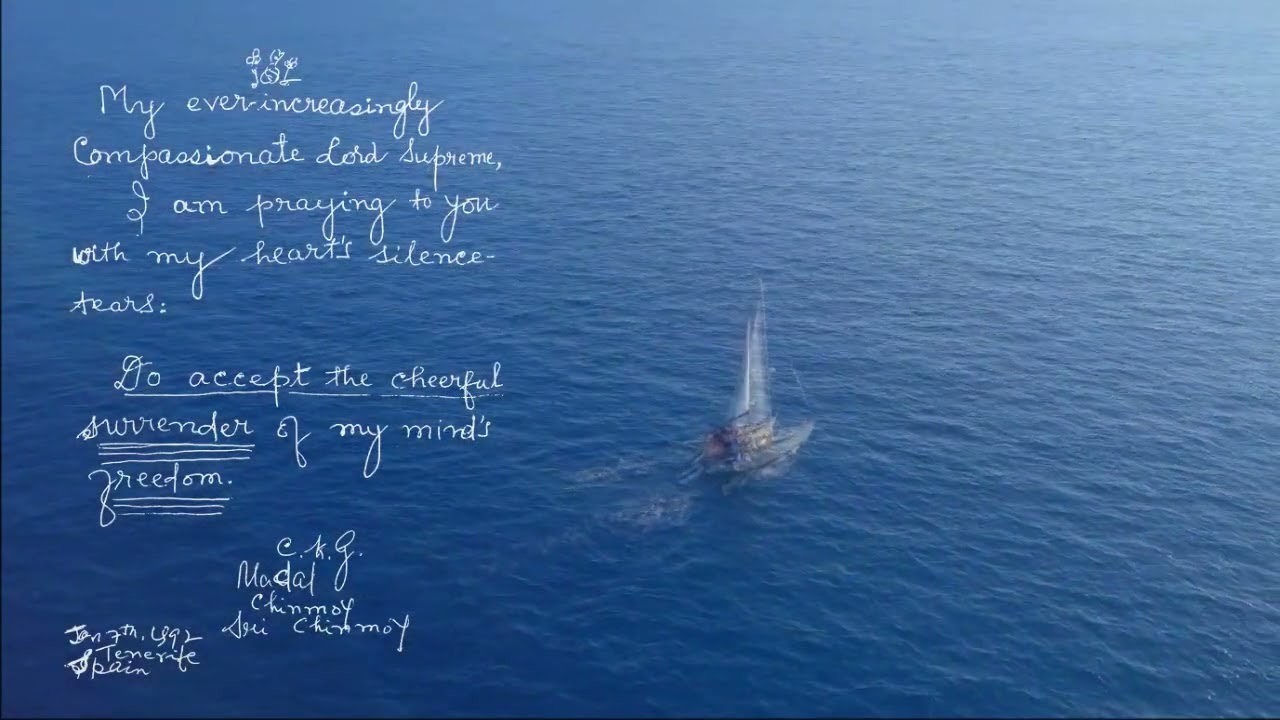 My ever-increasingly
Compassionate Lord Supreme,
I am praying to you
with my heart's silence-
tears:
Do accept the cheerful
surrender of my mind's
freedom.
C.K.G.
Madal
Chinmoy
Sri Chinmoy
Jan 7th, 1992
Tenerife
Spain